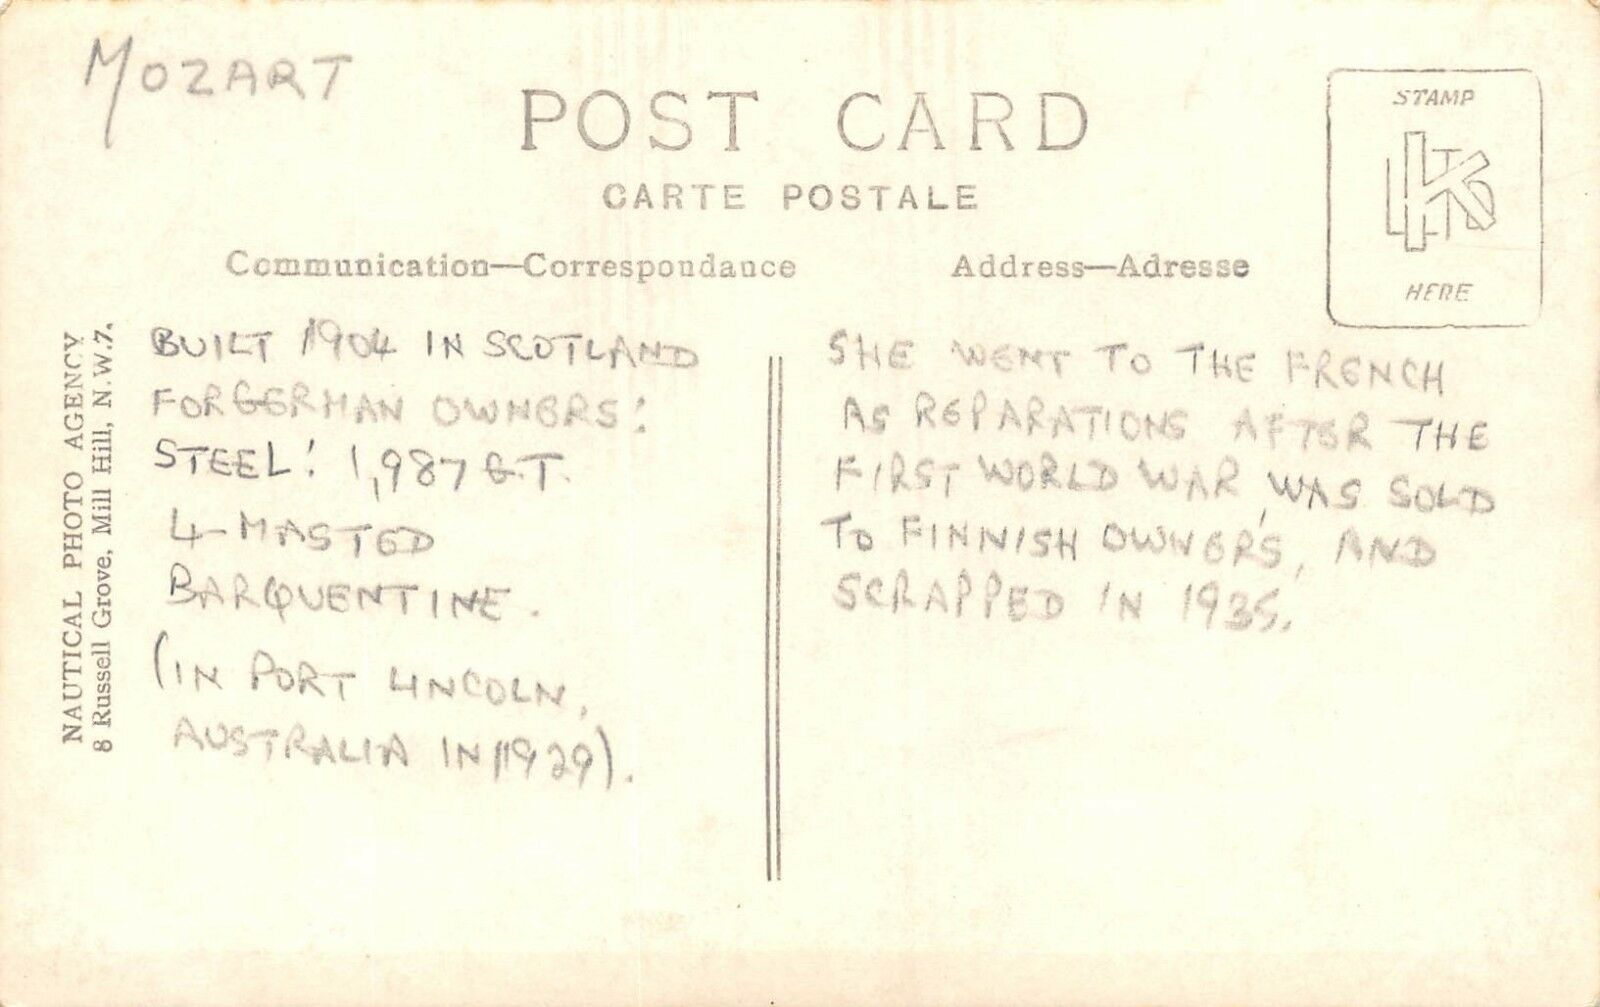 MOZART
POST CARD
CARTE POSTALE
Communication—Correspondance
Address—Adresse
STAMP
HERE
NAUTICAL PHOTO AGENCY
8 Russell Grove, Mill Hill, N.W.7.
BUILT 1904 IN SCOTLAND
FOR GERMAN OWNERS:
STEEL: 1,987 G.T.
4-MASTED
BARQUENTINE.
(IN PORT LINCOLN,
AUSTRALIA IN 1929).
SHE WENT TO THE FRENCH
AS REPARATIONS AFTER THE
FIRST WORLD WAR, WAS SOLD
TO FINNISH OWNERS, AND
SCRAPPED IN 1935.